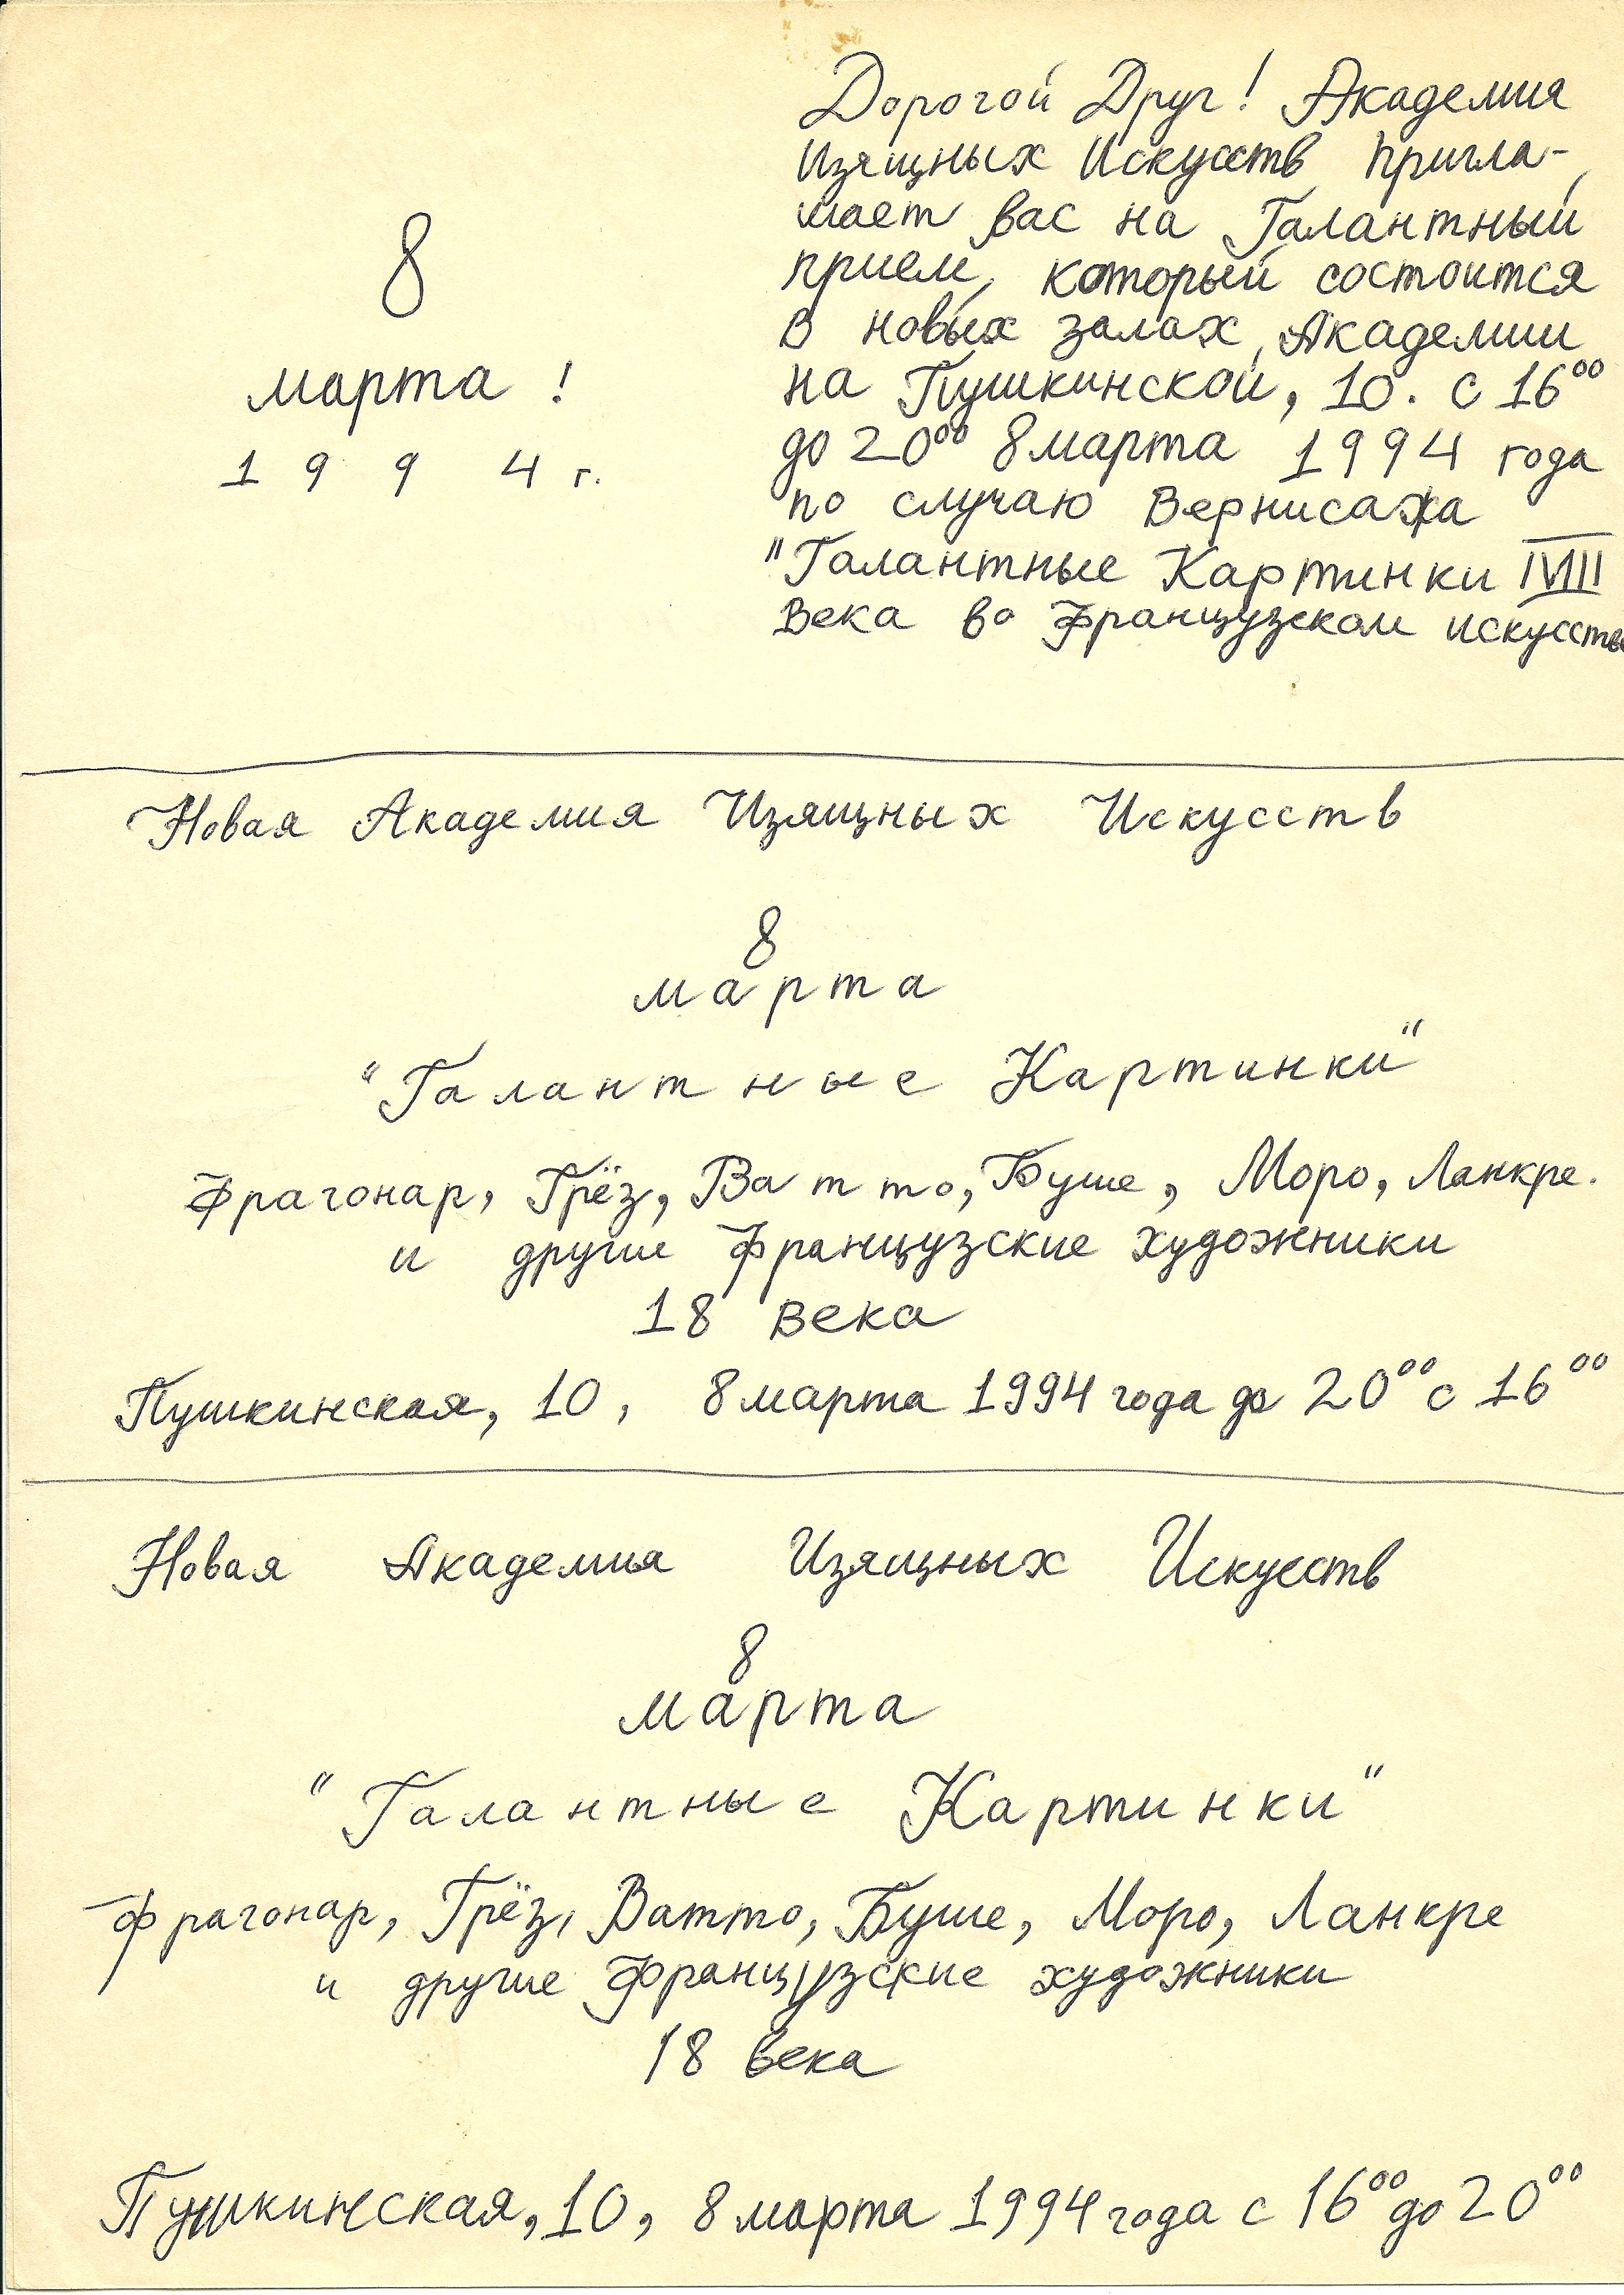 8
марта !
1994 г.
Дорогой Друг! Академия
Изящных Искусств пригла-
шает вас на Галантный
прием, который состоится
в новых залах Академии
на Пушкинской, 10. с 16⁰⁰
до 20⁰⁰ 8 марта 1994 года
по случаю Вернисажа
"Галантные Картинки IVIII
Века во Французском искусстве
Новая Академия Изящных Искусств
8
марта
"Галантные Картинки"
Фрагонар, Грёз, Ватто, Буше, Моро, Ланкре.
и другие французские художники
18 века
Пушкинская, 10, 8 марта 1994 года до 20⁰⁰ с 16⁰⁰
Новая Академия Изящных Искусств
8
марта
"Галантные Картинки"
Фрагонар, Грёз, Ватто, Буше, Моро, Ланкре
и другие Французские художники
18 века
Пушкинская, 10, 8 марта 1994 года с 16⁰⁰ до 20⁰⁰